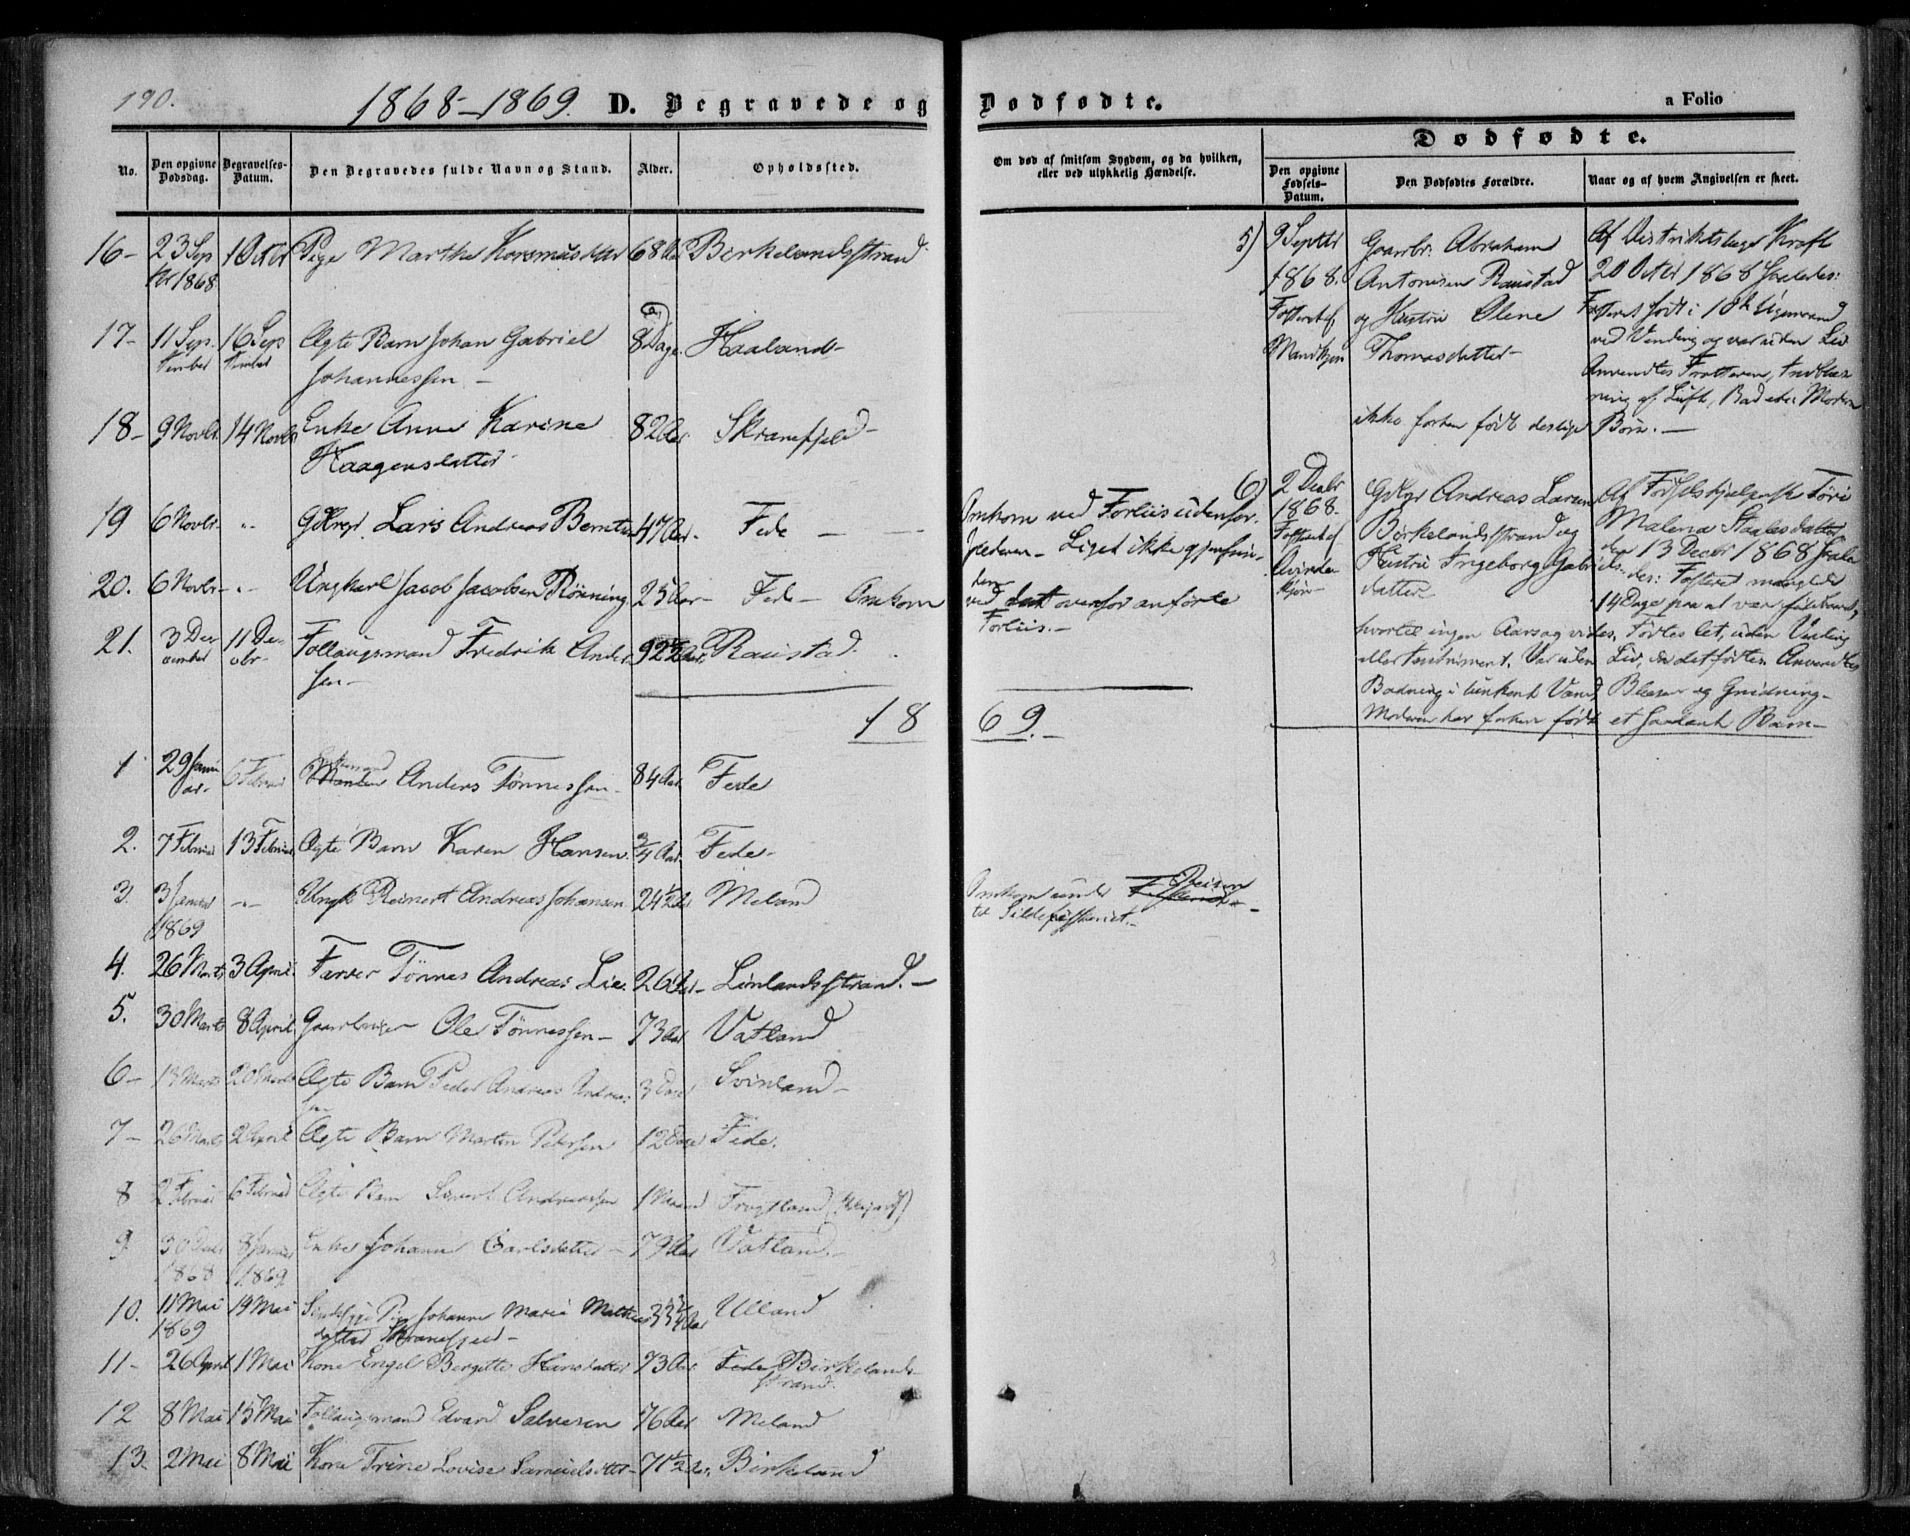 190.
1868-1869. D. Begravede og Dødfødte. a Folio
No. Den opgivne Dødsdag. Begravelses-Datum. Den Begravedes fulde Navn og Stand. Alder. Opholdssted.
Om død af smitsom Sygdom, og da hvilken, eller ved ulykkelig Hændelse.
Dødfødte.
Den opgivne Fødsels-Datum. Den Dødfødtes Forældre. Naar og af hvem Angivelsen er skeet.
16- 23 Sep 1 Octbr Pige Marthe 68 Aar Birkelandsstrand
tbr 1868
17- 11 Sep- 16 Sep Ægte Barn Johan Gabriel 8 Dage Haaland-
tember tember Johannessen-
18- 9 Novbr 14 Novbr Enke Anne Karine 82 Aar Skranefjeld-
Haagensdatter
19 6 Novbr " Lars Andreas Berntsen 47 Aar- Fede -
20. 6 Novbr- " Ungkarl Jacob Jacobsen Rönning 25 Aar- Fede- Omkom
21. 3 De- 11 De- Follaugsmand Fredrik Ander 92 Aar. Raustad
cember cbr- sen-
Omkom ved Forliis udenfor
Liget ikke gjenfun-
den
ved det ovenfor anførte
Forliis.-
1869.-
5) 9 Septbr Gaardbr. Abraham Af Distriktslæge Kraft
1868. Antonisen Raustad 20 Octbr 1868 saaledes:
Fosteret af og Hustru Olene Fosteret født i
Mandkjøn Thomasdatter- ved Vending og var uden Liv
Anvendtes Frotteren, Indblæs-
ning af Luft, Bad etc. Moderen
ikke forhen født deslige Børn.-
6) 2 Decbr Andreas Larsen Af Fødselshjælperske Tøri
1868. Birkelandsstrand og Malena Staalesdatter
Fosteret af Hustru Ingeborg Gabriels- den 13 Decbr 1868 saale
Qvinde datter des: Fosteret manglede
kjøn- 14 Dage paa at være
hvortil ingen Aarsag vides. Fødtes let, uden Vending
eller Instrument. Var uden Liv, da det fødtes. Anvendtes
Badning i lunkent Vand, Blæsen og Gnidning-
Moderen har forhen født et saadant Barn-
1 29 Janu 6 Februar Enkemand Anders Tönnessen- 84 Aar. Fede
ar-
2. 7 Februar 13 Februar Ægte Barn Karen Hansen 3/4 Aar. Fede-
3. 3 Januar -"- Ungk Reinert Andreas Johansen 24 1/2 Aar Meland
1869
Omkom under Reisen
til Sildefiskeriet.-
4. 26 Marts 3 April Farver Tönnes Andreas Lie 26 Aar- Linlandsstrand.-
5. 30 Marts 8 April Gaardbruger Ole Tönnessen- 73 Aar Vatland
6- 13 Marts 20 Marts Ægte Barn Peder Andreas Andreas 3 Svinland-
sen
7- 26 Marts 2 April Ægte Barn Martin Petersen 12 Fede.
8 2 Februar 6 Februar Ægte Barn Andreassen 1 Maaned
9 30 Decbr 8 Januar Enke Johanne Carlsdatter- 79 Aar Vatland.-
1868 1869
10. 11 Mai 19 Mai Pige Johanne Marie Mathias 33 Aar Ulland
1869 datter Skranefjeld-
11- 26 April 1 Mai Kone Engel Bergitte Hansdatter 73 Aar Fede Birkelands-
strand.
12 8 Mai 15 Mai Follaugsmand Edvard Salvesen 76 Aar Meland
13. 2 Mai 8 Mai Kone Trine Lovise Samuelsdtter- 71 1/2 Aar. Birkeland